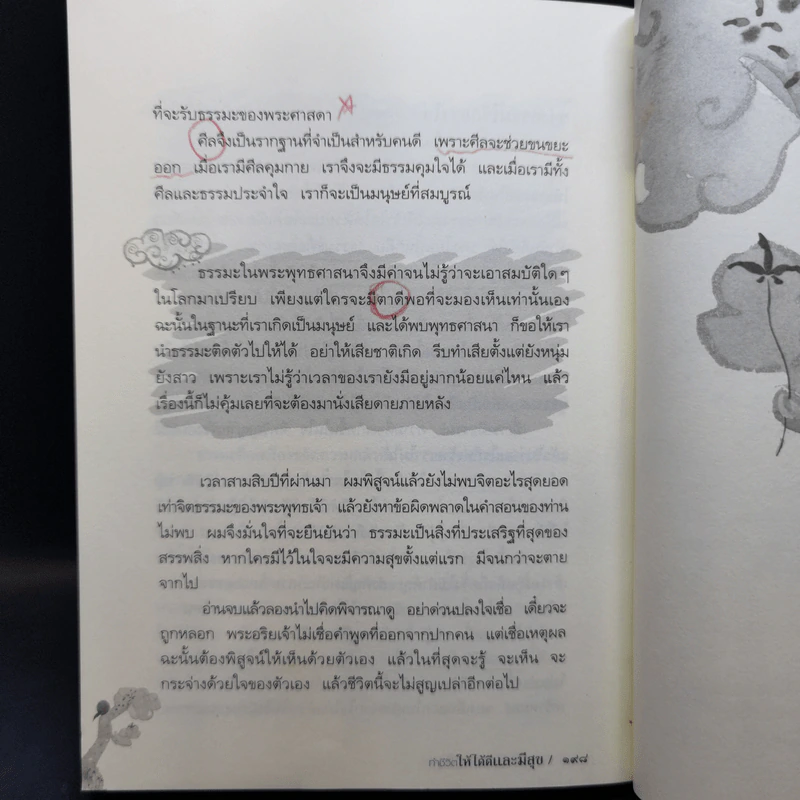 ที่จะรับธรรมะของพระศาสดา
ศีลจึงเป็นรากฐานที่จำเป็นสำหรับคนดี เพราะศีลจะช่วยขนขยะ
ออก เมื่อเรามีศีลคุมกาย เราจึงจะมีธรรมคุมใจได้ และเมื่อเรามีทั้ง
ศีลและธรรมประจำใจ เราก็จะเป็นมนุษย์ที่สมบูรณ์
ธรรมะในพระพุทธศาสนาจึงมีค่าจนไม่รู้ว่าจะเอาสมบัติใดๆ
ในโลกมาเปรียบ เพียงแต่ใครจะมีตาดีพอที่จะมองเห็นเท่านั้นเอง
ฉะนั้นในฐานะที่เราเกิดเป็นมนุษย์ และได้พบพุทธศาสนา ก็ขอให้เรา
นำธรรมะติดตัวไปให้ได้ อย่าให้เสียชาติเกิด รีบทำเสียตั้งแต่ยังหนุ่ม
ยังสาว เพราะเราไม่รู้ว่าเวลาของเรายังมีอยู่มากน้อยแค่ไหน แล้ว
เรื่องนี้ก็ไม่คุ้มเลยที่จะต้องมานั่งเสียดายภายหลัง
เวลาสามสิบปีที่ผ่านมา ผมพิสูจน์แล้วยังไม่พบจิตอะไรสุดยอด
เท่าจิตธรรมะของพระพุทธเจ้า แล้วยังหาข้อผิดพลาดในคำสอนของท่าน
ไม่พบ ผมจึงมั่นใจที่จะยืนยันว่า ธรรมะเป็นสิ่งที่ประเสริฐที่สุดของ
สรรพสิ่ง หากใครมีไว้ในใจจะมีความสุขตั้งแต่แรก มีจนกว่าจะตาย
จากไป
อ่านจบแล้วลองนำไปคิดพิจารณาดู อย่าด่วนปลงใจเชื่อ เดี๋ยวจะ
ถูกหลอก พระอริยเจ้าไม่เชื่อคำพูดที่ออกจากปากคน แต่เชื่อเหตุผล
ฉะนั้นต้องพิสูจน์ให้เห็นด้วยตัวเอง แล้วในที่สุดจะรู้ จะเห็น จะ
กระจ่างด้วยใจของตัวเอง แล้วชีวิตนี้จะไม่สูญเปล่าอีกต่อไป
ทำชีวิตให้ได้ดีและมีสุข / ๑๙๘